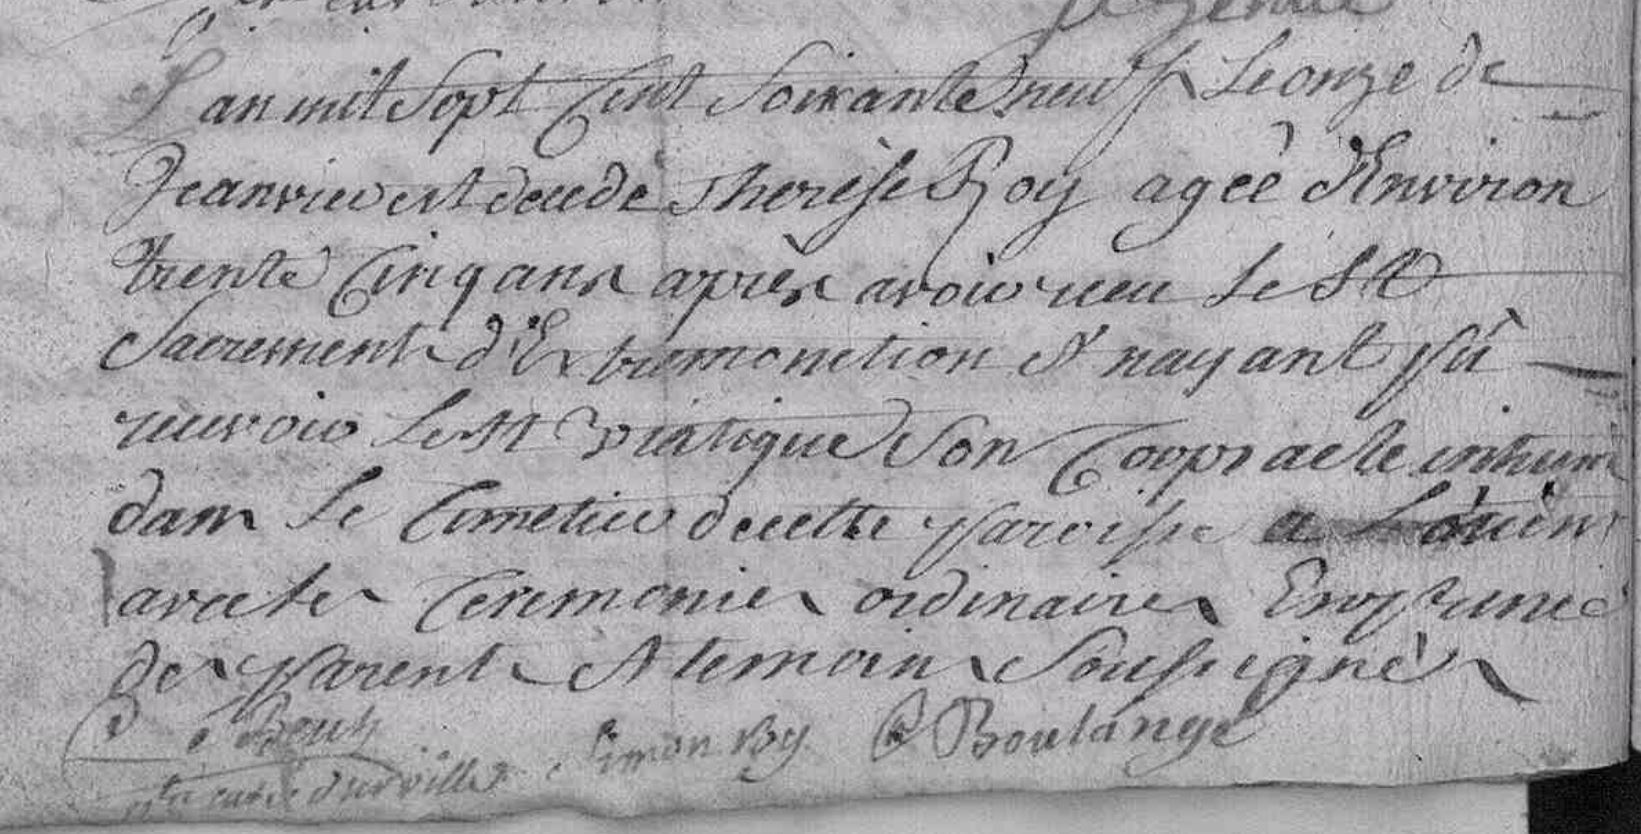 L'an mil Sept Cent Soixante neuf Le onze de
Jeanvier est decedé Therese Roy ageé d'Environ
trente Cinq ans après avoir receu Le St
Sacrement d'Extremonction et nayant pû
recevoir Le St Viatique Son Corps a ete inhumé
dans Le Cimetier de cette paroisse a
avec les Ceremonies ordinaires En presence
des parents et temoins Soussignés
Simon Roy Boulangé
curé d'urville